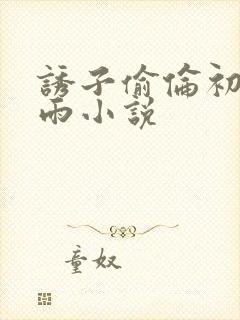 誘子偷倫初
雨小說
童奴